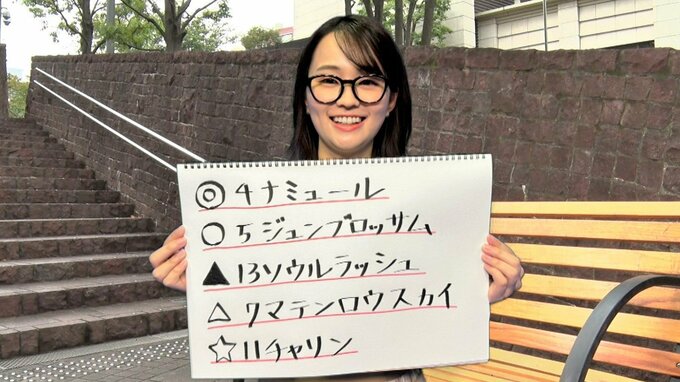 ◎4ナミュール
○5ジュンブロッサム
▲13ソウルラッシュ
△7マテンロウスカイ
☆11チャリン